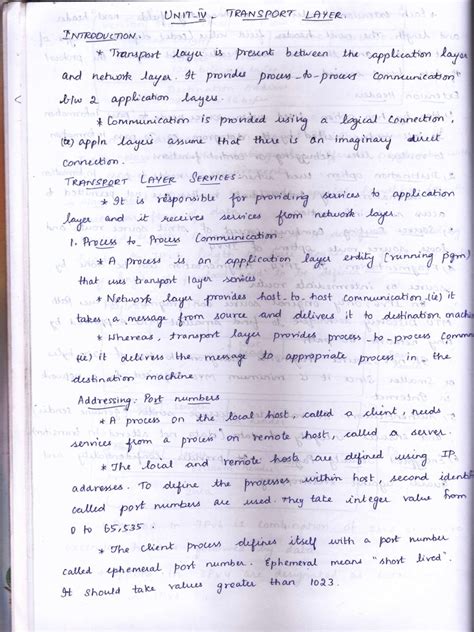 UNIT-IV - TRANSPORT LAYER
INTRODUCTION.
* Transport layer is present between the application layer
and network layer. It provides process-to-process communication
b/w 2 application layers.
* Communication is provided using a logical connection,
(ie) appln layers assume that there is an imaginary direct
connection.
TRANSPORT LAYER SERVICES:
* It is responsible for providing services to application
layer and it receives services from network layer
1. Process to Process Communication
* A process is an application layer entity (running pgm)
that uses transport layer services.
* Network layer provides host-to-host communication (ie) it
takes a message from source and delivers it to destination machine
* Whereas, transport layer provides process-to-process commn
(ie) it delivers the message to appropriate process in the
destination machine
Addressing: Port numbers
* A process on the local host, called a client, needs
services from a process on remote host, called a server.
* The local and remote hosts are defined using IP
addresses. To define the processes within host, second identi
called port numbers are used. They take integer value from
0 to 65,535.
* The client process defines itself with a port number
called ephemeral port number. Ephemeral means "short lived".
It should take values greater than 1023.